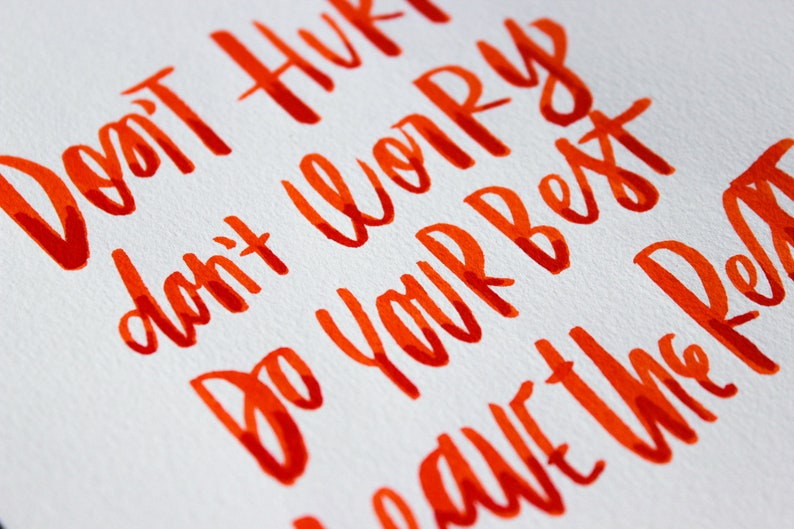 DON'T HUR
don't WORRY
DO YOUR BEST
LeAVE the ReST